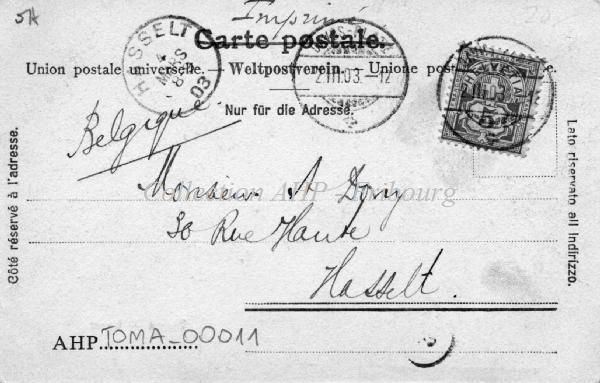 5A
Imprimé
Carte postale.
Union postale universelle. — Weltpostverein. — Unione postale
Nur für die Adresse.
HASSELT
4
MARS
8
03
2.III.03.-12
HELVETIA
2.III.03
5
Belgique
Collection AHP Limbourg
Monsieur A
30 Rue Haute
Hasselt.
Côté réservé à l'adresse.
Lato riservato all indirizzo.
AHP TOMA_00011